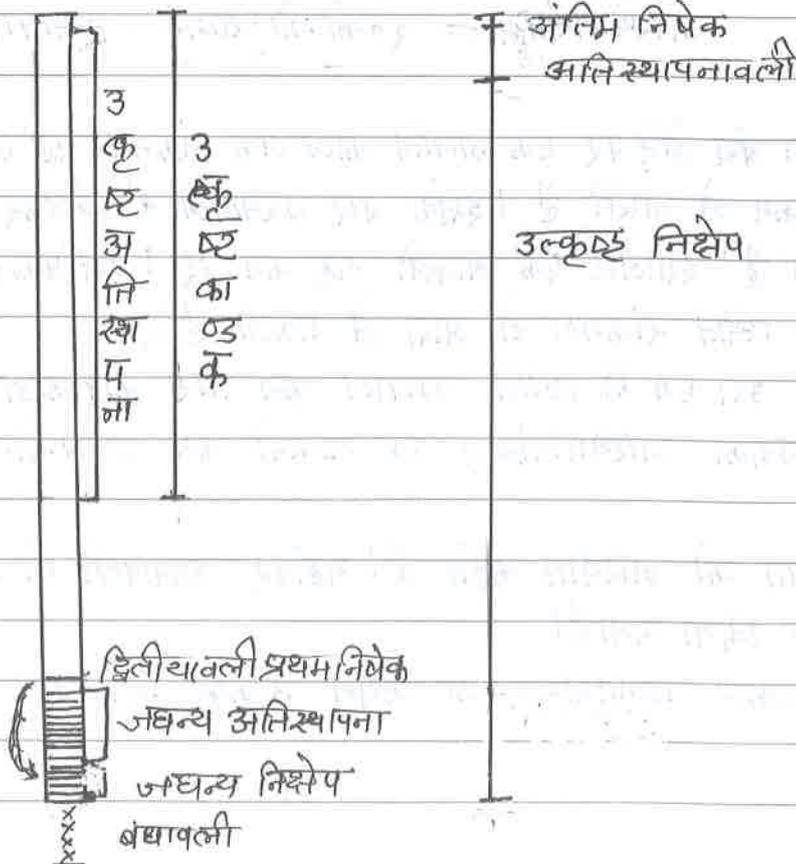 अंतिम निषेक
अतिस्थापनावली
उत्कृष्ट अतिस्थापना
उत्कृष्ट काण्डक
उत्कृष्ट निक्षेप
द्वितीयावली प्रथम निषेक
जघन्य अतिस्थापना
जघन्य निक्षेप
बंधावली